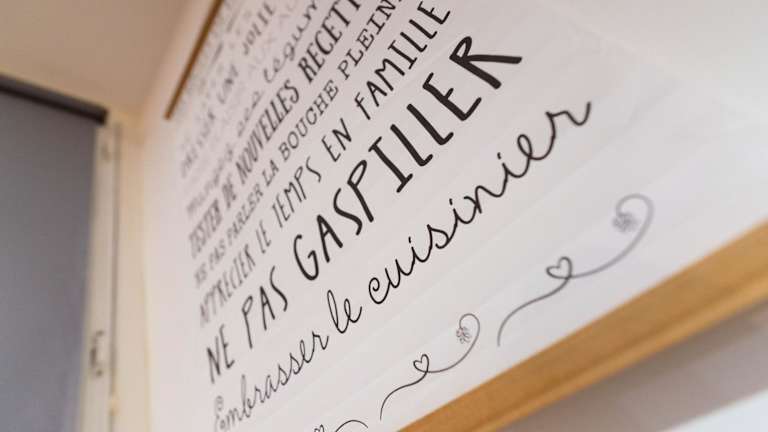 UNE JOLIE
Manger ses légumes
TESTER DE NOUVELLES RECETT
NE PAS PARLER LA BOUCHE PLEIN
APPRÉCIER LE TEMPS EN FAMILLE
NE PAS GASPILLER
Embrasser le cuisinier